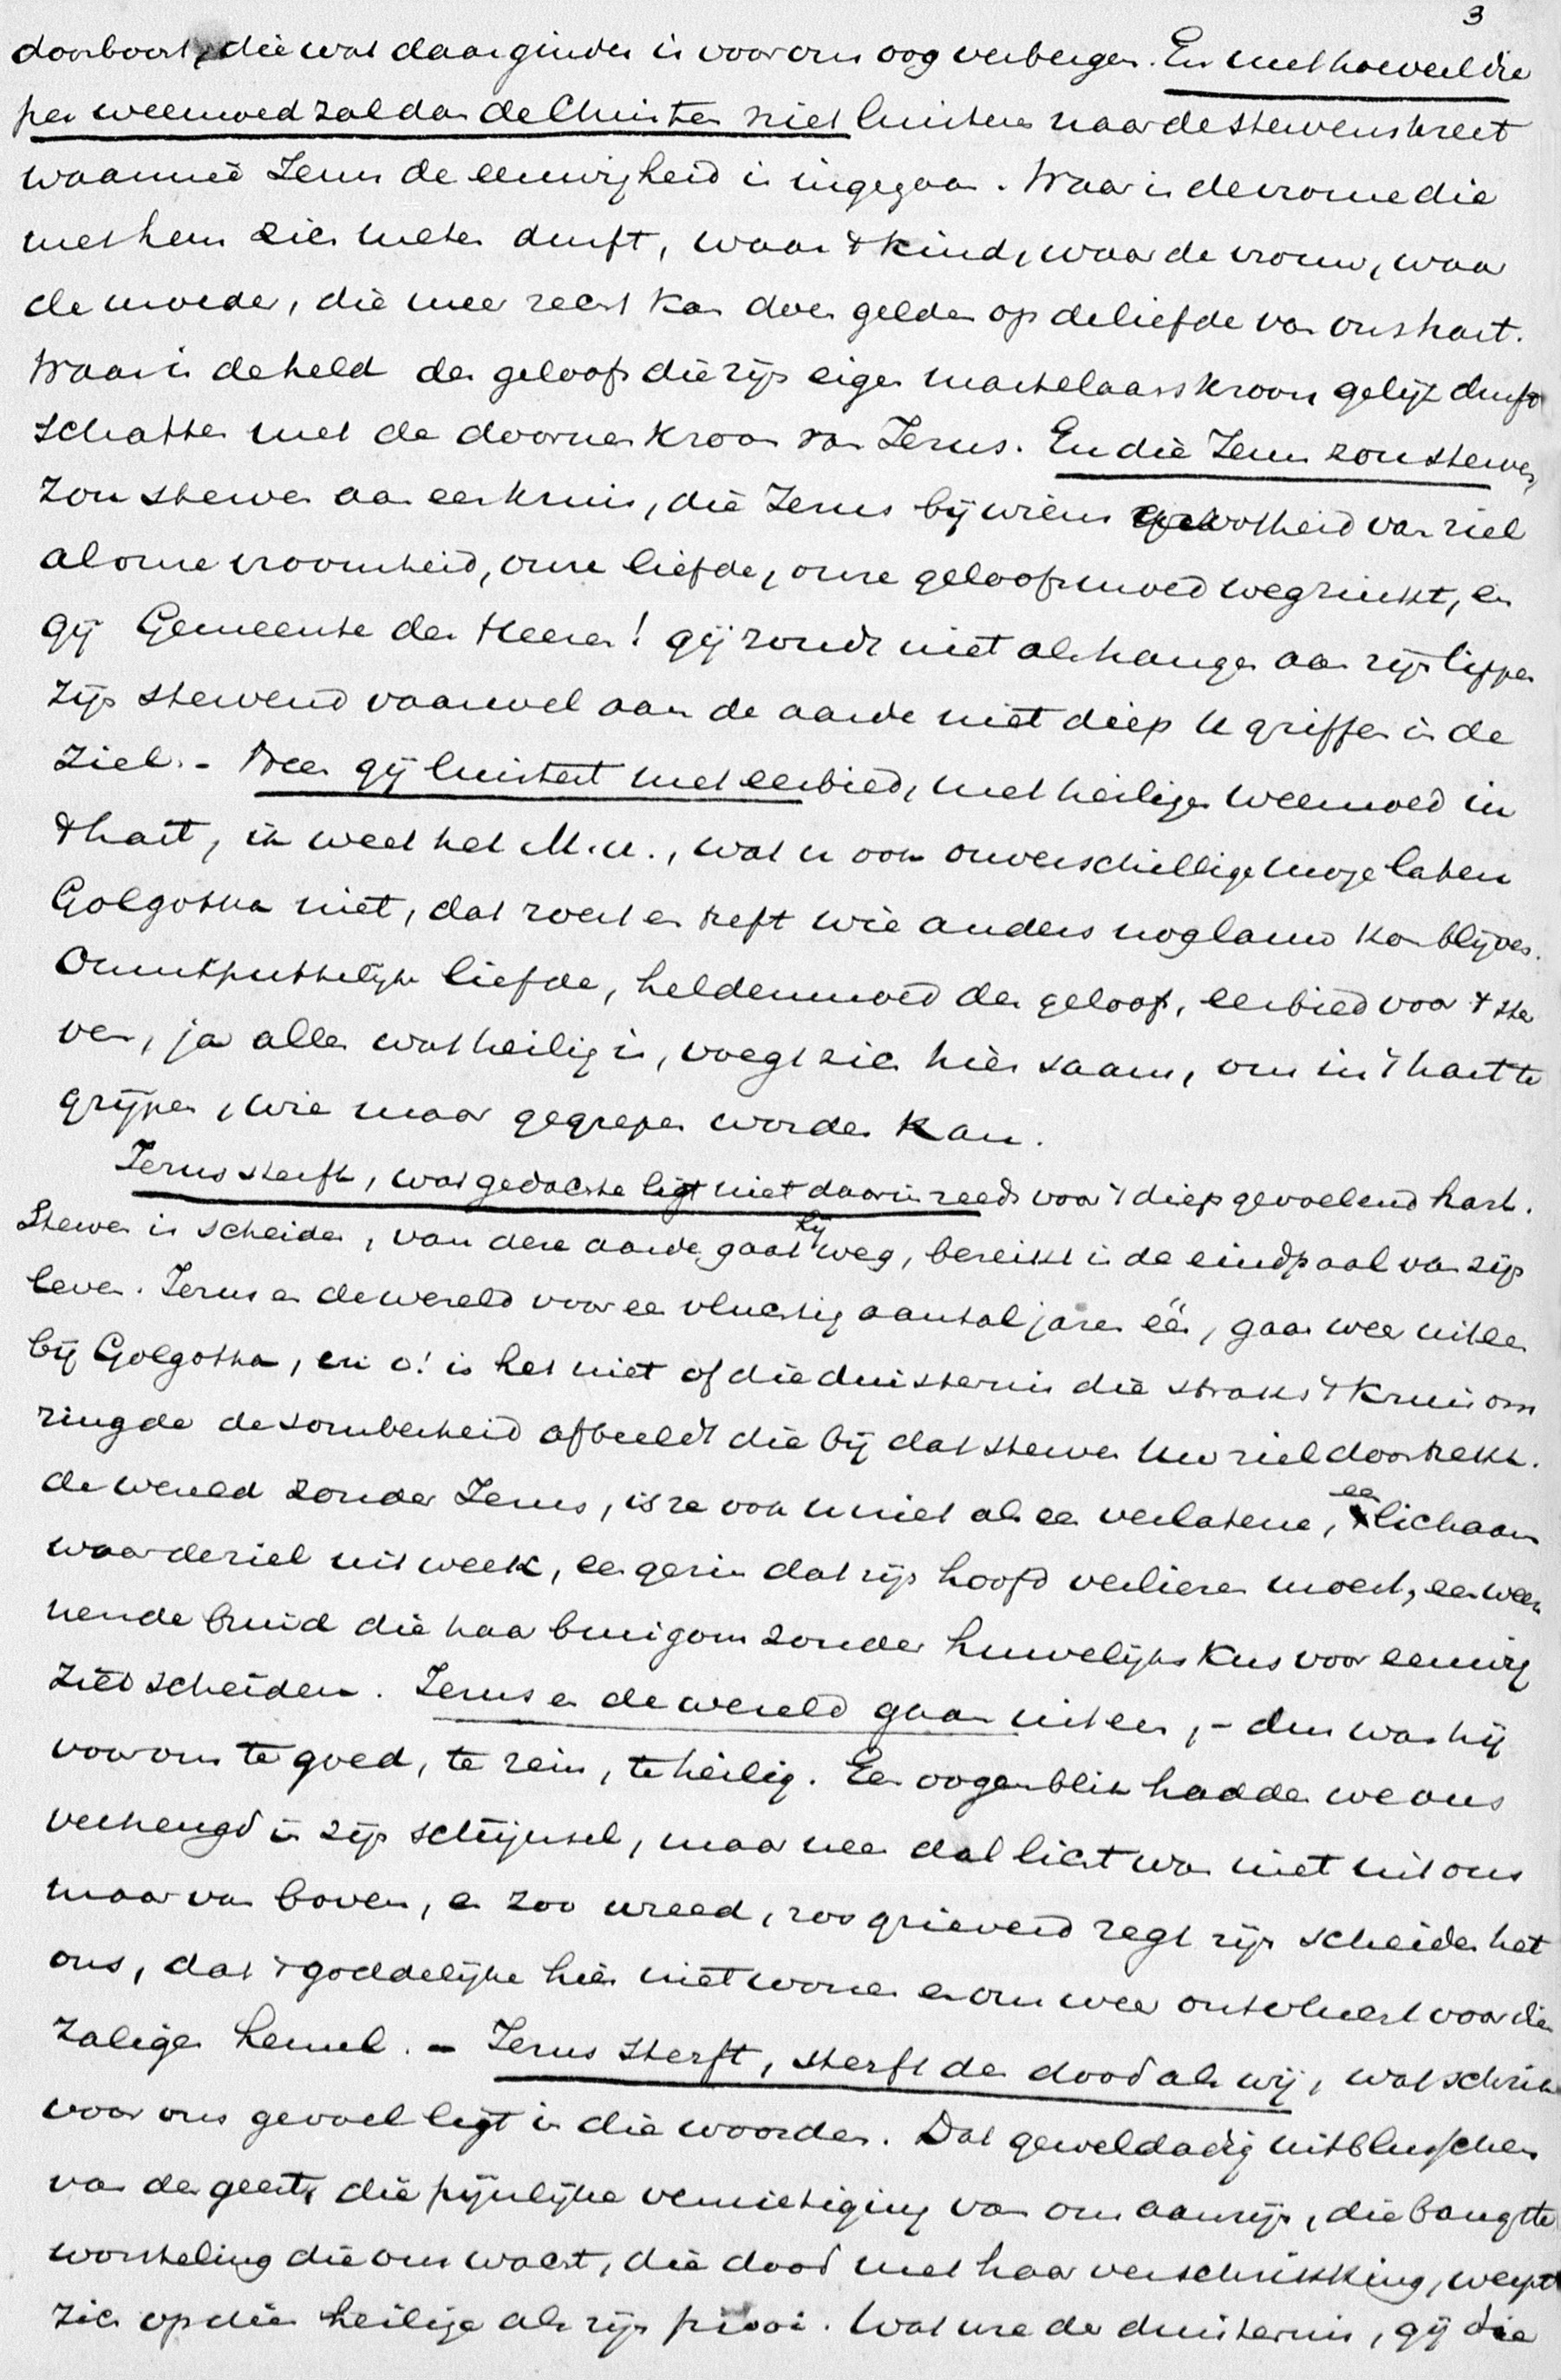 3
doorboort, die wat daarginder is voor ons oog verbergen. En met hoeveel die
per weemoed zal dan de Christen niet luisteren naar de stervenskreet
waarmeê Jezus de eeuwigheid is ingegaan. Waar is de vrome die
met hem zich meten durft, waar 't kind, waar de vrouw, waar
de moeder, die meer recht kan doen gelden op de liefde van ons hart.
Waar is de held des geloofs die zijn eigen martelaarskroon gelijk durft
schatten met de doornenkroon van Jezus. En die Jezus zou sterven,
zou sterven aan een kruis, die Jezus bij wiens grootheid van ziel
al onze vroomheid, onze liefde, onze geloofsmoed wegzinkt, en
gij Gemeente des Heeren! gij zoudt niet als hangen aan zijn lippen
zijn stervend vaarwel aan de aarde niet diep U griffen in de
ziel. - Neen gij luistert met eerbied, met heilige weemoed in
't hart, ik weet het M. U., wat u ook onverschillige moge laten
Golgotha niet, dat roert en treft wie anders nog lauw kan blijven.
Onuitputtelijke liefde, heldenmoed des geloofs, eerbied voor 't ster
ven, ja alles wat heilig is, voegt zich hier saam, om in 't hart te
grijpen, wie maar gegrepen worden kan.
Jezus sterft, wat gedachte ligt niet daarin reeds voor 't diepgevoelend hart.
Sterven is scheiden, van deze aarde gaat hij weg, bereikt is de eindpaal van zijn
leven. Jezus en de wereld voor een vluchtig aantal jaren één, gaan weer uiteen
bij Golgotha, en o! is het niet of die duisternis die straks 't kruis om
ringde de somberheid afbeeldt die bij dat sterven Uw ziel doortrekt.
de wereld zonder Jezus, is ze ook U niet als een verlatene, een lichaam
waar de ziel uit week, een gezin dat zijn hoofd verliezen moest, een wee
nende bruid die haar bruigom zonder huwelijkskus voor eeuwig
ziet scheiden. Jezus en de wereld gaan uiteen, - dus was hij
voor ons te goed, te rein, te heilig. Een oogenblik hadden we ons
verheugd in zijn schijnsel, maar neen dat licht was niet uit ons
maar van boven, en zoo wreed, zoo grievend zegt zijn scheiden het
ons, dat 't goddelijke hier niet wonen en om weer ontvlucht voor die
zalige hemel. - Jezus sterft, sterft de dood als wij, wat schrik
voor ons gevoel ligt in die woorden. Dat geweldadig uitblusschen
van de geest, die pijnlijke vernietiging van ons aanzijn, die bangste
worsteling die ons wacht, die dood met haar verschrikking, werpt
zich op dien heilige als zijn prooi. Wat wreede duisternis, gij die